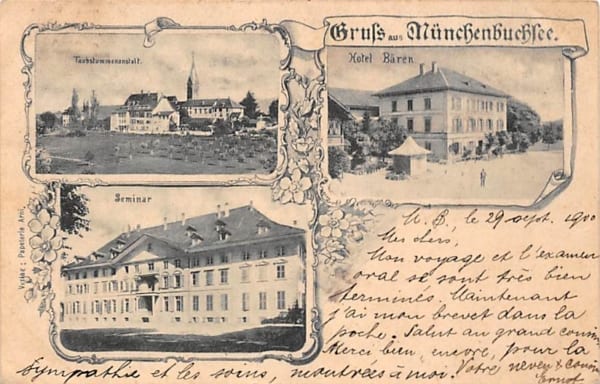 Gruß aus Münchenbuchsee.
Taubstummenanstalt.
Hotel Bären
Seminar
Verlag: Papeterie Arni.
M. B., le 29 sept. 1900
Mes chers,
Mon voyage et l'examen
oral se sont très bien
terminés. Maintenant
j'ai mon brevet dans la
poche. Salut au grand cousin
Merci bien, encore, pour la
sympathie et les soins, montrées à moi. Votre neveu & cousin